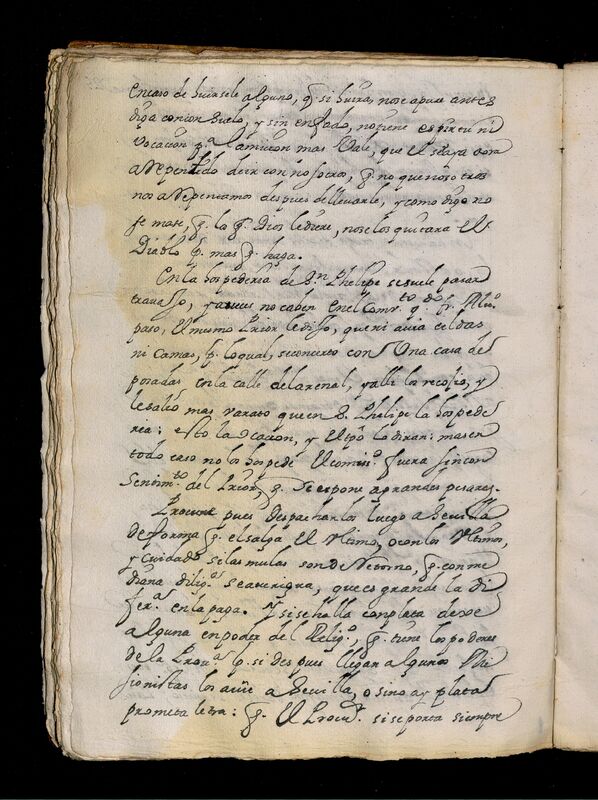 en caso de huirsele alguno, q. si huiras nose apure antes
diga con consuelo, y sin enfado, no tiene espiritu ni
vocacion pa. la mission mas vale, que el se aya aora
arepentido de ir con nosotros, q. no que nosotros
nos arepentamos despues de llevarle, y como digo no
se mate, q. lo q. Dios lediere, nose los quitara El
Diablo p. mas q. haga.
En la hospederia de Sn. Phelipe se suele pasar
travajo, y a veces no caben En el Comvto. qdo. fr.
paso, El mismo Prior le dijo, que ni avia celdas
ni camas, p. loqual, se concerto con Una casa de
posadas en la calle del arenal, y alli los recojio, y
le salio mas varato que en S. Phelipe la hospede
ria: esto la ocacion, y El tpo. lo diran: mas en
todo caso no los hospede El comiso. fuera sin con
Sentimto. del Prior, q. se espone a grandes pesares.
Procure pues despacharlos luego a Sevilla
de forma q. el salga El Vltimo, o con los Vltimos,
y Cuidado si las mulas son de Retorno, q. con me
diana diliga. se averigua, que es grande la di
fera. en la paga. Y si se halla con plata dexe
alguna en poder del Religo., q. tiene los poderes
de la Prova. p. si despues llegan algunos Mi
sionistas los avie a Sevilla, o si no ay plata
prometa letra: q. El Procur. si se porta siempre